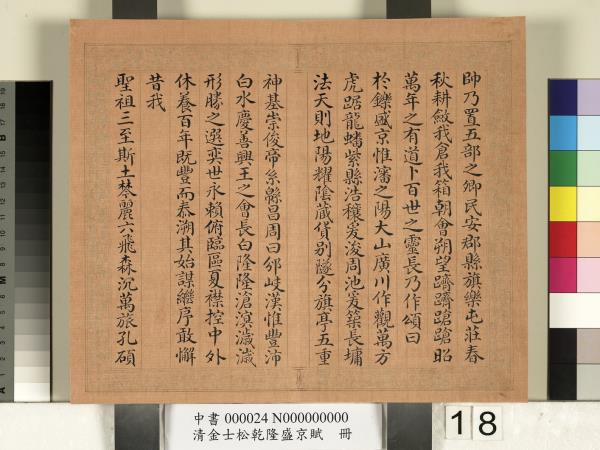 帥乃置五部之卿民安郡縣旗樂屯莊春
秋耕斂我倉我箱朝會朔望躋躋蹌蹌昭
萬年之有道卜百世之靈長乃作頌曰
於鑠盛京惟瀋之陽大山廣川作觀萬方
虎踞龍蟠紫縣浩穰爰浚周池爰築長墉
法天則地陽耀陰藏貨別隧分旗亭五重
神基崇俊帝系緜昌周曰邠岐漢惟豐沛
白水慶善興王之會長白隆隆滄溟濊濊
形勝之選奕世永賴俯臨區夏襟控中外
休養百年既豐而泰溯其始謀繼序敢懈
昔我
聖祖三至斯土棽麗六飛森沉萬旅孔碩
中書 000024 N000000000
清金士松乾隆盛京賦 冊
18